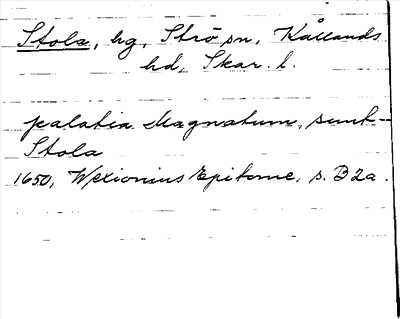 Stola, hg, Strö sn, Kållands
hd, Skar. l.
palatia Magnatum, sunt --
Stola
1650, Wexionius Epitome, s. B 2a.